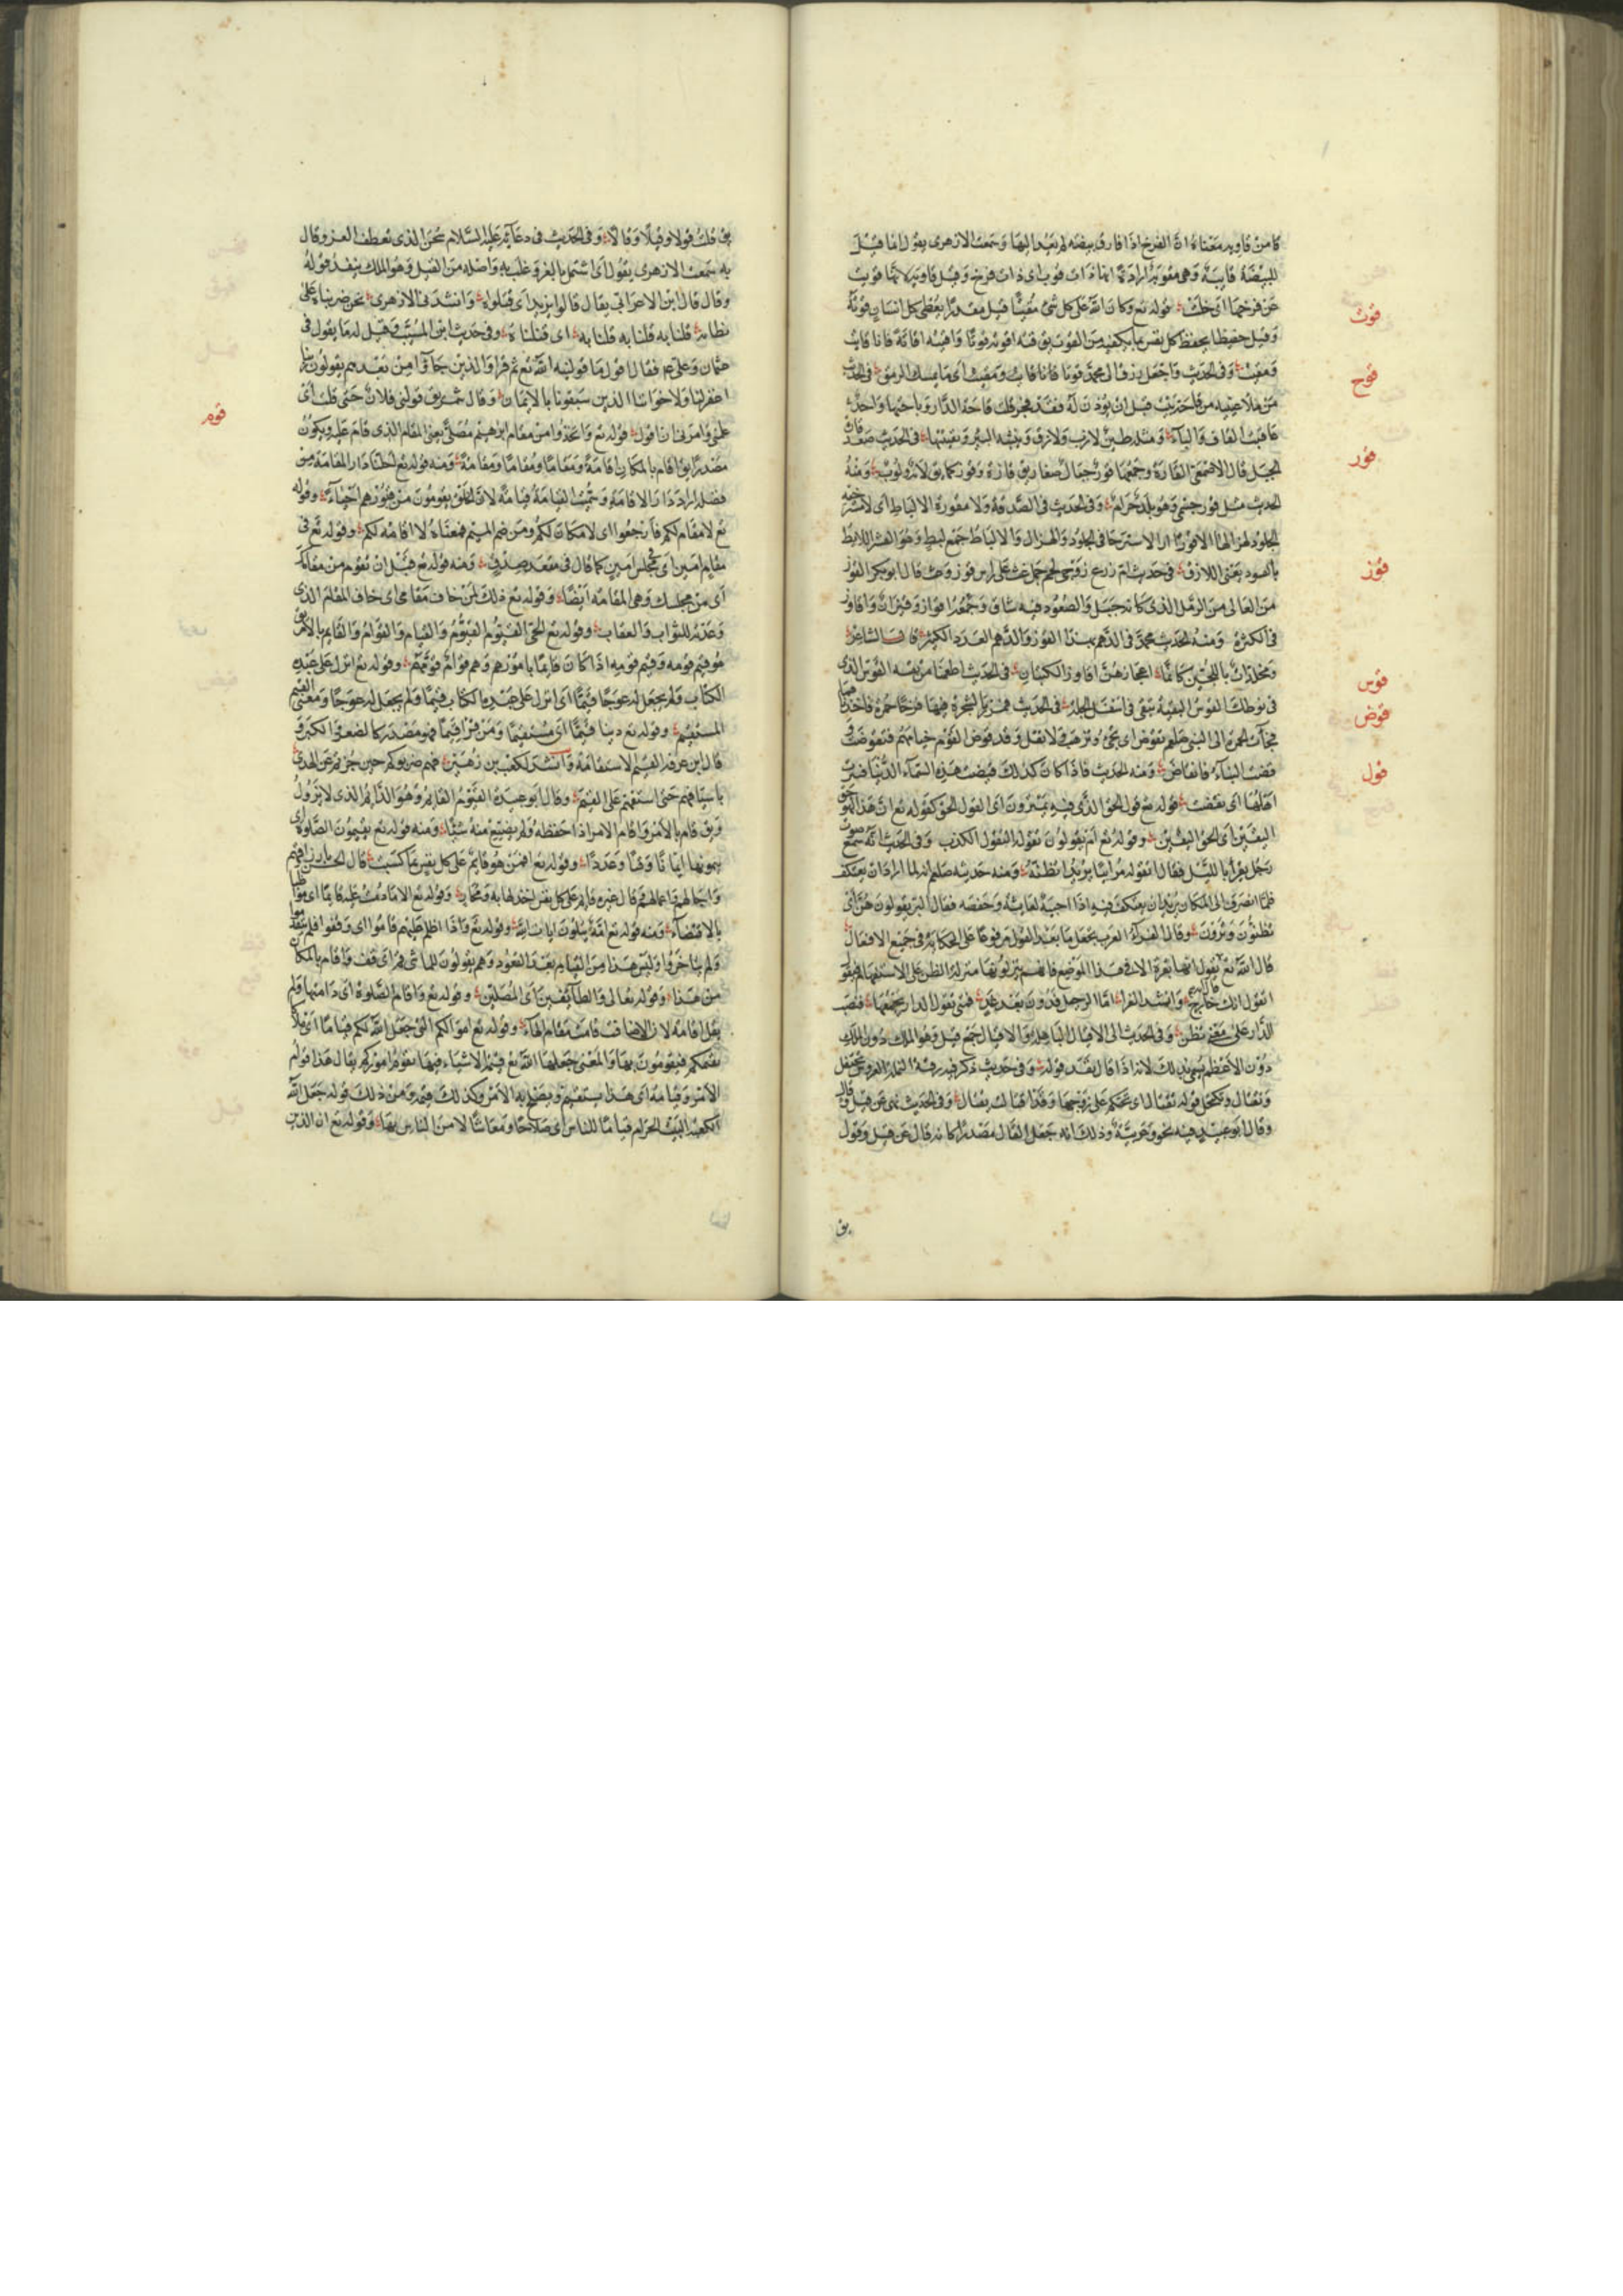 كا من قاوبه معناه ان الفرخ اذا فارق بيضته لم يعد اليها وسمعت الازهرى يقول انما قيل
للبيضة قايبة وهى مقوبة اراد انها ذات قوب اى ذات فرخ وقيل قاوبة لانها قوبت
عن فرخها اى خلت قوله تع وكان الله على كل شئ مقيتا قيل مقتدرا يعطى كل انسان قوته
قوت
وقيل حفيظا يحفظ كل نفس بما يكفيه من القوت يق قته اقوته قوتا واقيته اقاتة فانا قايت
ومقيت وفى الحديث واجعل رزق ال محمد قوتا وقايت ومقيت اى ما يمسك الرمق فى الحديث
قوح
من ملا عينيه من قاحة بيت قبل ان يؤذن له فقد فجر قال قاحة الدار وباحتها واحد
عاقبت القاف الباء ومثله طين لازب ولازق ونبيثة البير ونقيثتها فى الحديث صعد قارة
الجبل قال الاصمعى القارة وجمعها قور جبال صغار يق قارة وقور كما يق لابة ولوب ومنه
قور
الحديث مثل قور حسمى وهو بلد حرام وفى الحديث فى الصدقة ولا مقورة الالياط اى لا مسترخية
الجلود لهزالها الاقورار الاسترخا فى الجلود والهزال والالياط جمع ليط وهو القشر اللايط
بالعود يعنى اللازق فى حديث ام زرع زوجى لحم جمل غث على راس قوز وعث قال ابو بكر القوز
قوز
من العالى من الرمل الذى كانه جبل والصعود فيه شاق وجمعه اقواز وقيزان واقاوز
فى الكثرة ومنه الحديث محمد فى الدهم بهذا القوز والدهم العدد الكثير قال الشاعر
ومخلدات باللجين كانما اعجازهن اقاوز الكثبان فى الحديث اطعمنا من بقية القوس الذى
قوس
فى نوطك القوس البقية تبقى فى اسفل الجلة فى الحديث مررنا بشجرة فيها فرخا حمرة فاخذناهما
قوض
فجآت الحمرة الى النبى صلعم تقوض اى تجئ وتذهب ولا تقل وقد قوض القوم خيامهم فتقوضت
قضت البناء فانقاض ومنه الحديث فاذا كان كذلك قيضت هذه السماء الدنيا عن
قول
اهلها اى نقضت قوله تع قول الحق الذى فيه يمترون اى القول الحق كقوله تع ان هذا لهو حق
اليقين اى الحق اليقين وقوله تع ام يقولون تقوله التقول الكذب وفى الحديث انه سمع صوت
رجل يقرا بالليل فقال اتقوله مرائيا يريد اتظنه ومنه حديثه صلعم انه لما اراد ان يعتكف
فلما انصرف الى المكان يريد ان يعتكف فيه اذا اخبية لعايشة وحفصة فقال البر يقولون بهن اى
تظنون وترون وقال الفراء العرب تجعل ما بعد القول مرفوعا على الحكاية فى جميع الافعال
اتقول انك خارج وانشد الفرا اما الرحيل فدون بعد غد فمتى تقول الدار تجمعنا فنصب
الدار على معنى تظن وفى الحديث الى الاقيال العباهلة والاقيال جمع قيل وهو الملك دون الملك
دون الاعظم سمى بذلك لانه اذا قال نفذ قوله وفى حديث ذكر فيه رقية النملة العروس تحتفل
وتقتال وتكتحل قوله تقتال اى تحتكم على زوجها وفى الحديث نهى عن قيل وقال
وقال ابو عبيد فيه نحو وعربية وذلك انه جعل القال مصدرا كانه قال عن قيل وقول
يق
يق قلت قولا وقيلا وقالا وفى الحديث فى دعايه عليه السلام سبحن الذى تعطف العز وقال
به سمعت الازهرى يقول اى اشتمل بالعز وغلب به واصله من القيل وهو الملك ينفذ قوله
وقال قال ابن الاعرابى يقال قالوا بزيد اى قتلوه وانشدنى الازهرى نحن ضربناه على
نطابه قلنا به قلنا به قلنا به اى قتلناه وفى حديث ابن المسيب وقيل له ما يقول فى
عثمان وعلى فقال اقول ما قولنيه الله تع ثم قرا والذين جاؤا من بعدهم يقولون ربنا
اغفر لنا ولاخواننا الذين سبقونا بالايمان وقال شمر يق قولنى فلان حتى قلت اى
علمنى وامرنى ان اقول قوله تع واتخذوا من مقام ابرهيم مصلى يعنى المقام الذى قام عليه ويكون
قوم
مصدرا يق اقام بالمكان اقامة ومقاما ومقاما ومقامة ومنه قوله تع احلنا دار المقامة من
فضله اراد دار الاقامة وسميت القيامة قيامة لان الخلق يقومون من قبورهم احياء وقوله
تع لا مقام لكم فارجعوا اى لا مكان لكم ومن ضم الميم فمعناه لا اقامة لكم وقوله تع فى
مقام امين اى فى مجلس امين كما قال فى مقعد صدق ومنه قوله تع قبل ان تقوم من مقامك
اى من مجلسك وهى المقامة ايضا وقوله تع ذلك لمن خاف مقامى اى خاف المقام الذى
وعدته للثواب والعقاب وقوله تع الحى القيوم القيوم والقيام والقوام والقايم بالامر
هو قيم قومه وقيم قومه اذا كان قايما بامورهم وهم قوام وقوله تع انزل على عبده
الكتاب ولم يجعل له عوجا قيما اى انزل على عبده الكتاب قيما ولم يجعل له عوجا ومعنى القيم
المستقيم وقوله تع دينا قيما اى مستقيما ومن قرا قيما فهو مصدر كالصغر والكبر و
قال ابن عرفة القيم الاستقامة وانشد لكعب بن زهير فهم ضربوكم حين جرتم عن الهدى
باسيافهم حتى استقمتم على القيم وقال ابو عبيدة القيوم القايم وهو الدايم الذى لا يزول
ويق قام بالامر واقام الامر اذا حفظه ولم يضيع منه شيئا ومنه قوله تع يقيمون الصلوة اى
وقوله تع افمن هو قايم على كل نفس بما كسبت قال الحسن
قال غيره قايم على كل نفس اخذ لها به ومجاز وقوله تع الا ما دمت عليه قايما اى مواظبا
بالاقتضاء ومنه قوله تع امة يتلون ايات الله وقوله تع واذا اظلم عليهم قاموا اى وقفوا فلم
ولم يتاخروا وليس هذا من القيام بعد القعود وهم يقولون للماشى قم اى قف واقام بالمكان
من هذا وقوله تعالى والطائفين اى المصلين وقوله تع واقام الصلوة اى دامتها ولم
يقل اقامة لان الاضافة قامت مقام الهاء وقوله تع اموالكم التى جعل الله لكم قياما اى
يقيمكم فيقومون بها والمعنى جعلها الله تع قيم الاشياء فيها تقوم اموركم يقال هذا قوام
الامر وقيامه اى هذا يستقيم ويصلح به الامر وكذلك قيمه ومن ذلك قوله جعل الله
الكعبة البيت الحرام قياما للناس اى صلاحا ومعاشا لامن الناس بها وقوله تع ان الذين